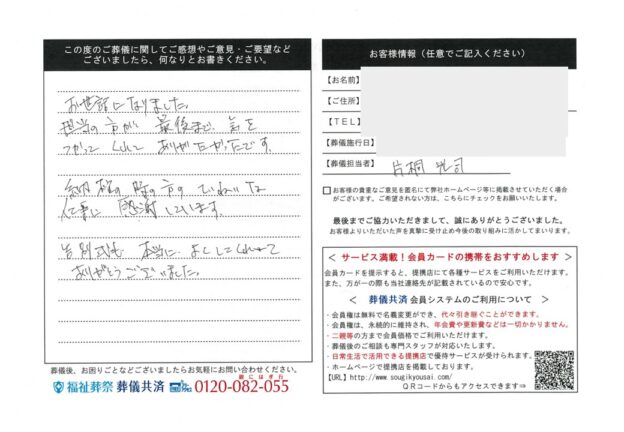 この度のご葬儀に関してご感想やご意見・ご要望など
ございましたら、何なりとお書きください。
お世話になりました。
担当の方が 最後まで 気を
つかって くれて ありがたかったです。
納棺の際の方の ていねいな
仕事に 感謝しています。
告別式も 本当に よくしてくれて
ありがとうございました。
葬儀後、お困りごとなどございましたらお気軽にお問い合わせください。
福祉葬祭 葬儀共済 0120-082-055
お客様情報（任意でご記入ください）
【お名前】
【ご住所】
【TEL】
【葬儀施行日】
【葬儀担当者】 片桐
お客様の貴重なご意見を匿名にて弊社ホームページ等に掲載させていただく場合
がございます。ご希望されない方は、こちらにチェックをお願いいたします。
最後までご協力いただきまして、誠にありがとうございました。
お客様よりいただいた声を真摯に受け止め今後の取り組みに活かしてまいります。
＜ サービス満載！会員カードの携帯をおすすめします ＞
会員カードを提示すると、提携店にて各種サービスをご利用いただけます。
また、万が一の際も当社連絡先が記載されているので安心です。
＜ 葬儀共済 会員システムのご利用について ＞
・会員権は無料で名義変更ができ、代々引き継ぐことができます。
・会員権は、永続的に維持され、年会費や更新費などは一切かかりません。
・二親等の方まで会員価格でご利用いただけます。
・葬儀後のご相談も専門スタッフが対応いたします。
・日常生活で活用できる提携店で優待サービスが受けられます。
・ホームページで提携店を掲載しております。
【URL】http://www.sougikyousai.com/
QRコードからもアクセスできます⇒